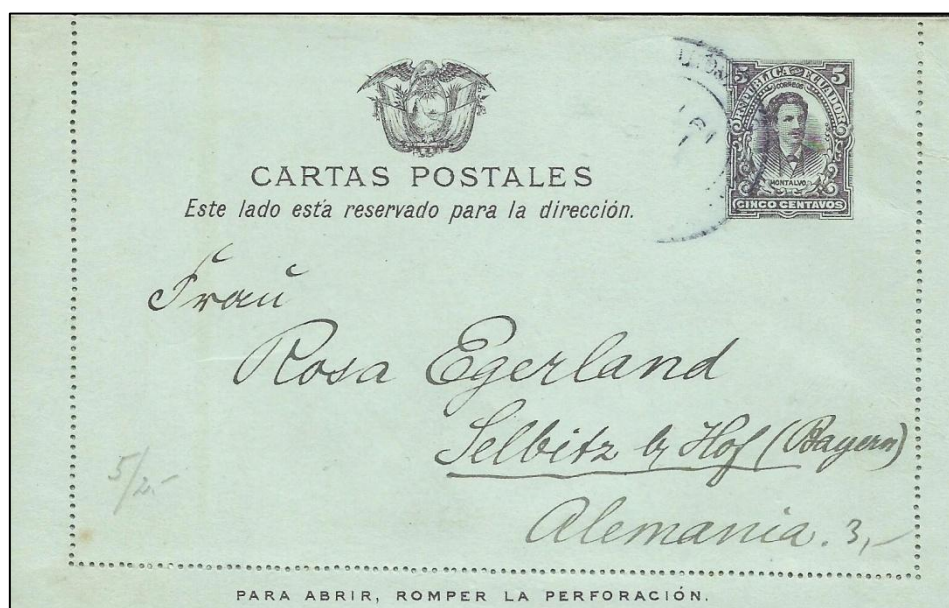 5 REPUBLICA DEL ECUADOR 5
CORREOS
MONTALVO
CINCO CENTAVOS
CARTAS POSTALES
Este lado está reservado para la dirección.
Frau
Rosa Egerland
Selbitz b/ Hof (Bayern)
5/2.-
Alemania. 3,-
PARA ABRIR, ROMPER LA PERFORACIÓN.